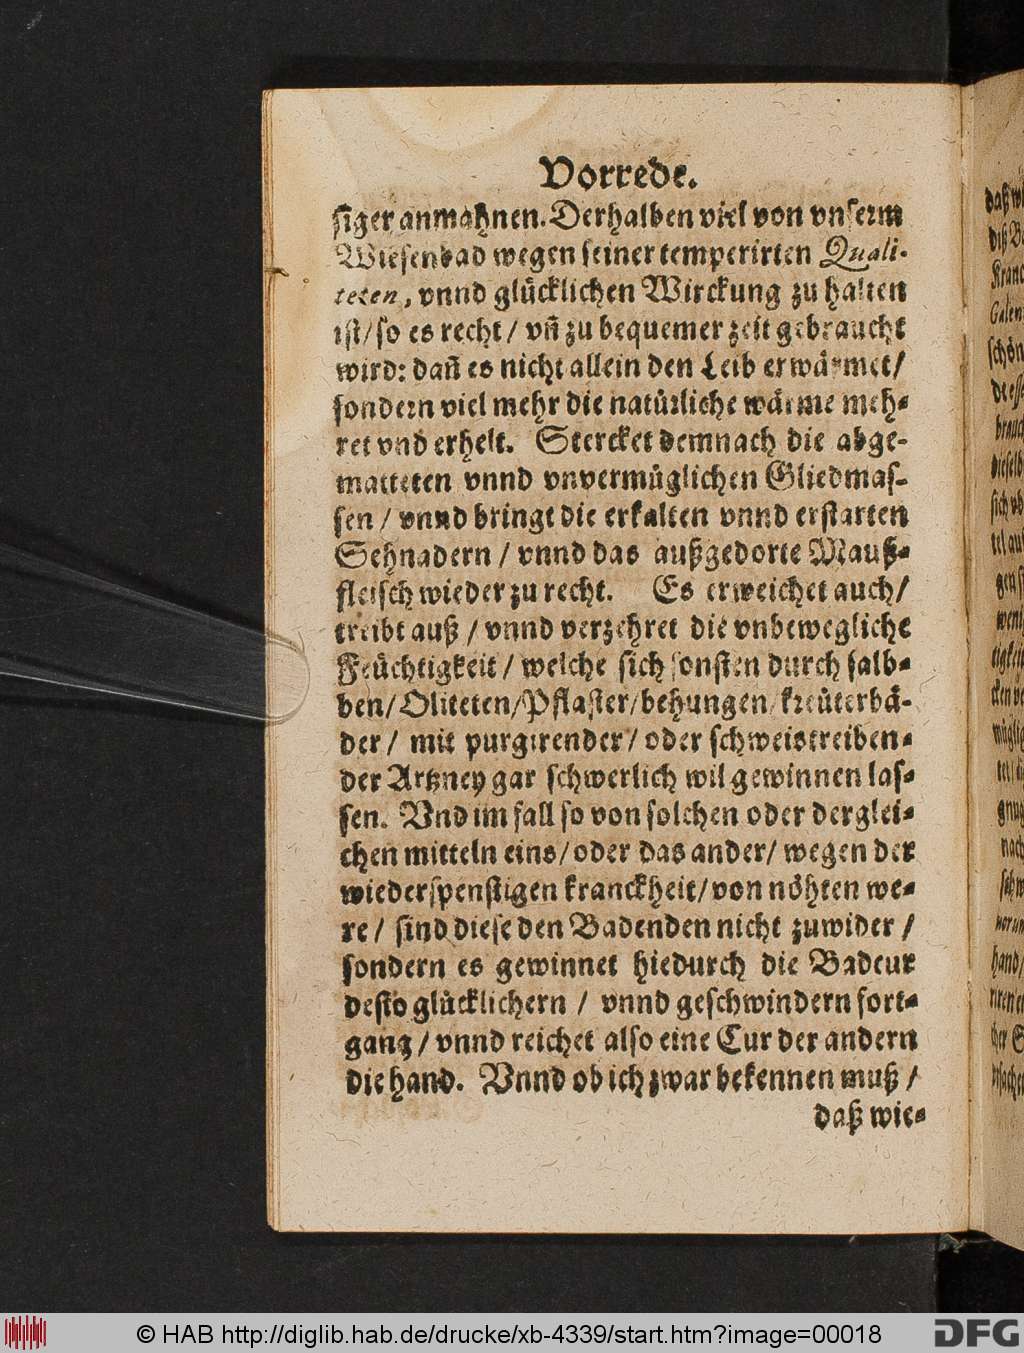 Vorrede.
siger anmahnen. Derhalben viel von vnserm
Wiesenbad wegen seiner temperirten Quali-
teten, vnnd glücklichen Wirckung zu halten
ist/ so es recht/ vñ zu bequemer zeit gebraucht
wird: dañ es nicht allein den Leib erwärmet/
sondern viel mehr die natürliche wärme meh-
ret vnd erhelt. Stercket demnach die abge-
matteten vnnd vnvermüglichen Gliedmas-
sen / vnnd bringt die erkalten vnnd erstarten
Sehnadern / vnnd das außgedorte Mauß-
fleisch wieder zu recht. Es erweichet auch/
treibt auß / vnnd verzehret die vnbewegliche
Feüchtigkeit / welche sich sonsten durch salb-
ben/ Oliteten/ Pflaster/ behungen/ kreüterbä-
der / mit purgirender/ oder schweistreiben-
der Artzney gar schwerlich wil gewinnen las-
sen. Vnd im fall so von solchen oder derglei-
chen mitteln eins/ oder das ander/ wegen der
wiederspenstigen kranckheit/ von nöhten we-
re / sind diese den Badenden nicht zuwider /
sondern es gewinnet hiedurch die Badcur
desto glücklichern / vnnd geschwindern fort-
gang / vnnd reichet also eine Cur der andern
die hand. Vnnd ob ich zwar bekennen muß /
daß wie-
© HAB http://diglib.hab.de/drucke/xb-4339/start.htm?image=00018
DFG